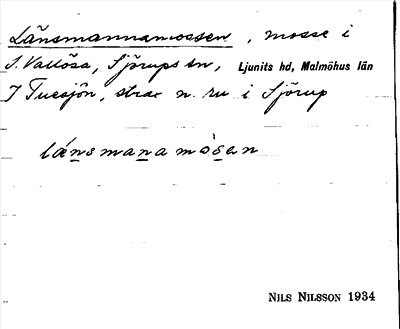 Länsmannamossen, mosse i
S. Vallösa, Sjörups sn, Ljunits hd, Malmöhus län
strax n. i Sjörup
länsmana mòsen
NILS NILSSON 1934